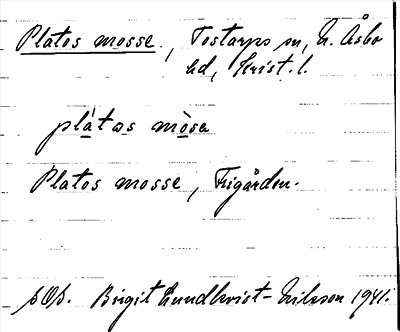 Platos mosse, Tostarps sn, N. Åsbo
hd, Krist. l.
plátos mòsa
Platos mosse, Frigården.
SOS. Birgit Lundkvist-Nilsson 1941.